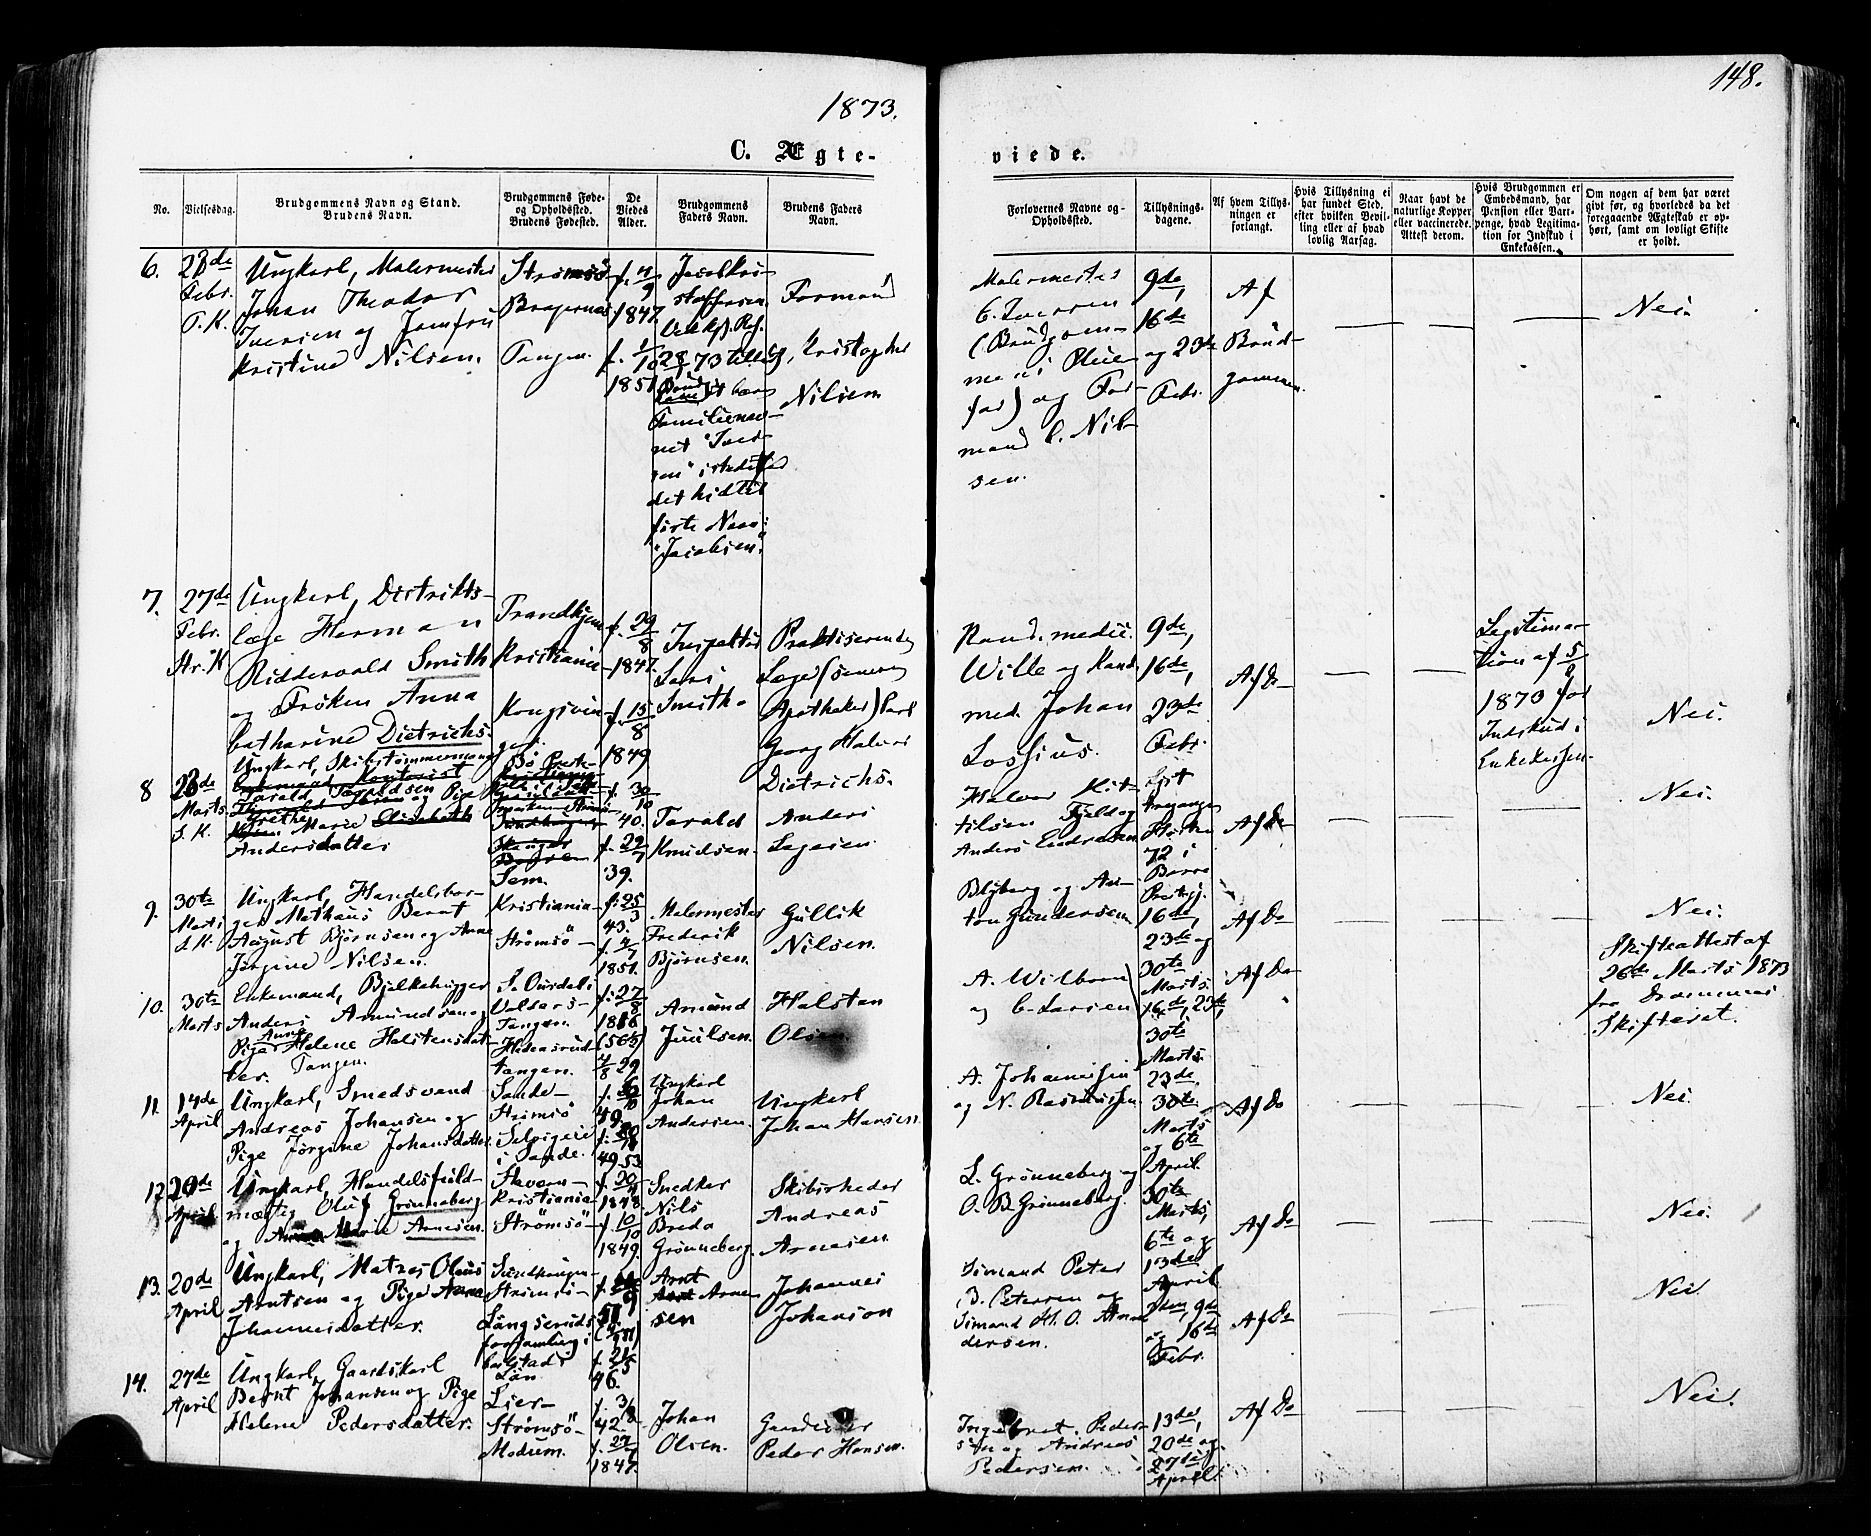 148.
1873.
C. Ægte-
viede.
No.
Vielsesdag.
Brudgommens Navn og Stand.
Brudens Navn.
Brudgommens Føde-
og Opholdssted.
Brudens Fødested.
De
Viedes
Alder.
Brudgommens
Faders Navn.
Brudens Faders
Navn.
Forlovernes Navne og
Opholdssted.
Tillysnings-
dagene.
Af hvem Tillys-
ningen er
forlangt.
Hvis Tillysning ei
har fundet Sted.
efter hvilken Bevil-
ling eller af hvad
lovlig Aarsag.
Naar havt de
naturlige Kopper
eller vaccinerede.
Attest derom.
Hvis Brudgommen er
Embedsmand, har
Pension eller Vart-
penge, hvad Legitima-
tion for Indskud i
Enkekassen.
Om nogen af dem har været
givt før, og hvorledes da det
foregaaende Ægteskab er op-
hørt, samt om lovligt Skifte
er holdt.
6.
Febr.
T. K.
Ungkarl, Malermester
Johan Theodor
Iversen og Jomfru
Kristine Nilsen.
Strømsø
Bragernæs
Tangen.
f. 4/9
1847.
f. 1/10
1851
Jacob Kri-
stoffersen
Familienav-
net "Iver-
sen" istedetfor
det hidtil
førte Navn:
"Jacobsen".
Formand
Kristopher
Nilsen
Malermester
C. Iversen
(Brudgom-
mens Pleie-
far) og For-
mand C. Nil-
sen.
9de,
16de
og 23de
Febr.
Af
Brud-
gommen.
Nei.
7.
27de
Febr.
Str. K
Ungkarl, Distrikts-
læge Herman
Ridderwald Smith
og Frøken Anna
Catharine Dietrichs.
Trondhjem
Kristiania
Kongsvin-
ger.
f. 29/8
1847.
f. 15/8
1849
Lars
Smith
Praktiserende
Læge (senere
Apotheker) Carl
Georg Halvor
Dietrichs.
Kand. medic.
Wille og Kand.
med. Johan
Lossius.
9de,
16de,
23de
Febr.
Af Do
Legitima-
tion af 5/2
1873 for
Indskud i
Enkekassen.
Nei.
8
23de
Marts
S. K.
Ungkarl, Skibstømmermand
Tarald Taraldsen
og Pige
Grethe Marie
Andersdatter
Sem.
f. 30/10
40.
f. 29/7
39.
Tarald
Knudsen.
Anders
Halvor Kit-
tilsen Fjeld og
Anders
72 i
Borre
Prstgj.
Af Do
Nei.
9.
30te
Marts
S. K.
Ungkarl, Handelsbor-
ger Mathæus Bernt
August Bjørnsen og Anne
Jørgine Nilsen.
Kristiania
Strømsø
f. 25/3
43.
f. 4/7
1851.
Malermester
Frederik
Bjørnsen.
Gullik
Nilsen.
Blyberg og An-
ton Gundersen
16de,
23de og
30te
Marts.
Af Do
Nei.
10.
30te
Marts
Enkemand, Bjelkehugger
Anders Amundsen og
Pige Anne Helene Halstensdat-
ter. Tangen.
S. Ourdal i
Valders
Tangen.
tangen.
f. 27/8
1816
(56½)
4/8 29
Amund
Juulsen.
Halsten
A. Wilborn
og C. Larsen
16de, 23de,
30te
Marts.
Af Do
Skifteattest af
26de Marts 1873
fra Drammens
Skifteret.
11.
14de
April
Ungkarl, Smedsvend
Andreas Johansen og
Pige Jørgine Johansdatter
Sande
Strømsø
i Sande.
49.
Ungkarl
Johan
Andersen.
Ungkarl
Johan Hansen.
A. Johannesen
og N. Rasmussen.
23de,
30te
Marts
og 6te
April.
Af Do
Nei.
12
20de
April
Ungkarl, Handelsfuld-
mægtig Oluf Grønneberg
og Marie Arnesen.
Stavern
Kristiania
Strømsø
f. 20/
1848
f. 10/10
1849.
Snedker
Nils
Breda
Grønneberg.
Skibsreder
Andreas
Arnesen.
L. Grønneberg og
O. B. Grønneberg.
30te
Marts,
6te og
13de
April
Af Do
Nei.
13.
20de
April
Ungkarl, Matros Olaus
Arntsen og Pige Anna
Johannesdatter.
Strømsø
Karlstads
Län
f. 21/5
46.
Arnt
Arne-
sen
Johannes
Johanson
Sømand Peter
B. Petersen og
Sømand H. O. An-
dersen.
2den, 9de
og 16de
Febr.
Af Do
Nei.
14.
27de
April
Ungkarl, Gaardskarl
Bernt Johansen og Pige
Helene Pedersdatter.
Lier
Strømsø
Modum.
f. 3/8
42.
f. 27/
1847.
Johan
Olsen.
Peder Hansen.
Ingebret Peder-
sen og Andreas
Pedersen.
13de,
20de og
27de
April.
Af Do
Nei.